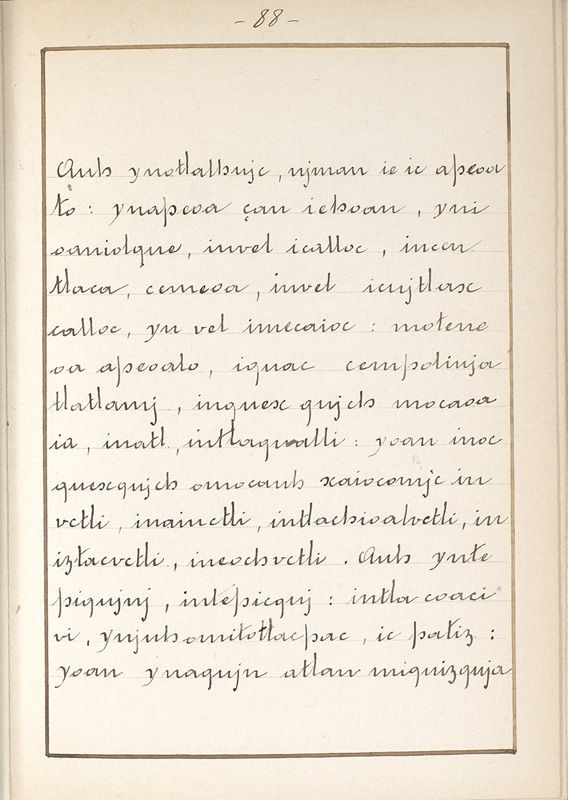 - 88 -
Auh ynotlalhujc, njman ie ic apeoa
lo: ynapeoa çan iehoan, yni
oaniolque, invel icalloc, incen
tlaca, cemeoa, invel icnjtlax
calloc, yn vel imecaioc: motene
oa apeoalo, iquac cempolinja
tlatlamj, inquex qujch mocaoa
ia, inatl, intlaqualli: yoan inoc
quexqujch omocauh xaiocomjc in
vctli, inainctli, intlachioalvctli, in
iztacvctli, ineochvctli. Auh ynte
piqujnj, intepicquj: intla coaci
vi, ynjuhomitotlacpac, ic patiz:
yoan ynaqujn atlan miquizquja